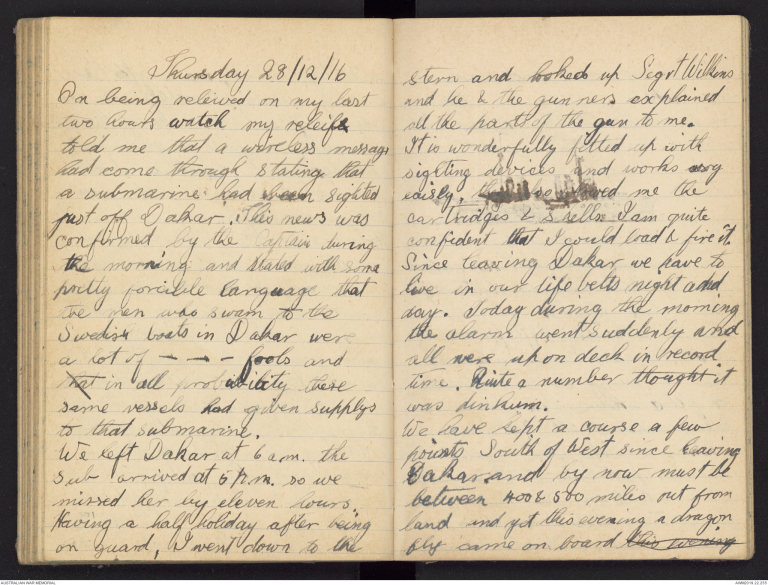 Thursday 28/12/16
On being releived on my last
two hours watch my releife
told me that a wireless message
had come through stating that
a submarine had been sighted
just off Dakar. This news was
confirmed by the Captain during
the morning and stated with some
pretty forcible language that
the men who swam to the
Swedish boats in Dakar were
a lot of - - - fools and
that in all probability these
same vessels had given supplys
to that submarine.
We left Dakar at 6 a.m. the
sub arrived at 5 p.m. so we
missed her by eleven hours.
Having a half holiday after being
on guard, I went down to the
stern and looked up Sergt Wilkins
and he & the gunners explained
all the parts of the gun to me.
It is wonderfully fitted up with
sighting devices and works very
easily, showed me the
cartridges & shells I am quite
confident that I could load & fire it.
Since leaving Dakar we have to
live in our life belts night and
day. Today during the morning
the alarm went suddenly and
all were up on deck in record
time. Quite a number thought it
was dinkum.
We have kept a course a few
points South of West since leaving
Dakar and by now must be
between 400 & 500 miles out from
land and yet this evening a dragon
fly came on board this evening
AUSTRALIAN WAR MEMORIAL